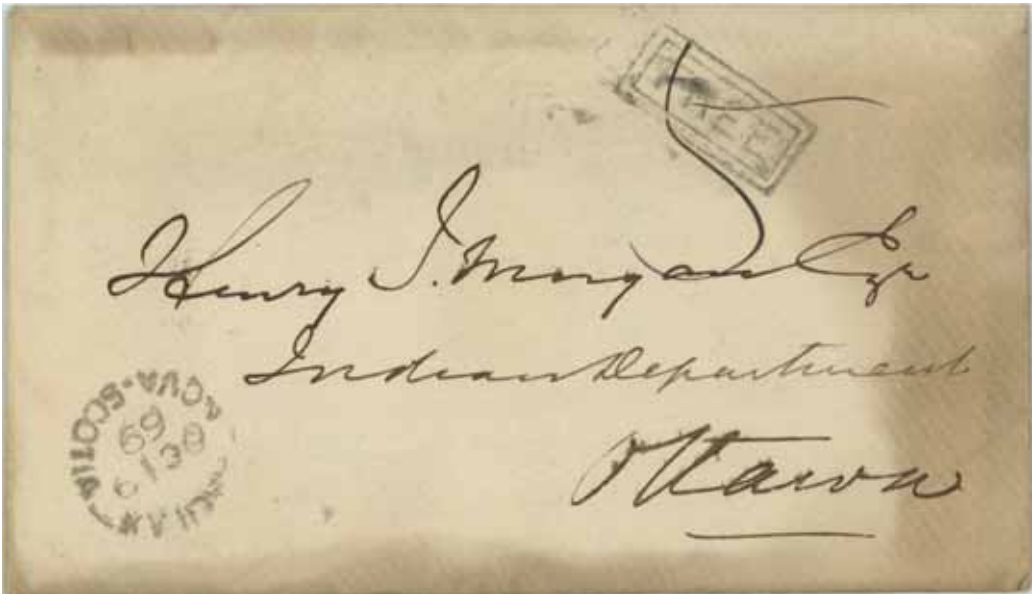 FREE
Henry J. Morgan Esqr
Indian Department
Ottawa
NOVA-SCOTIA
69